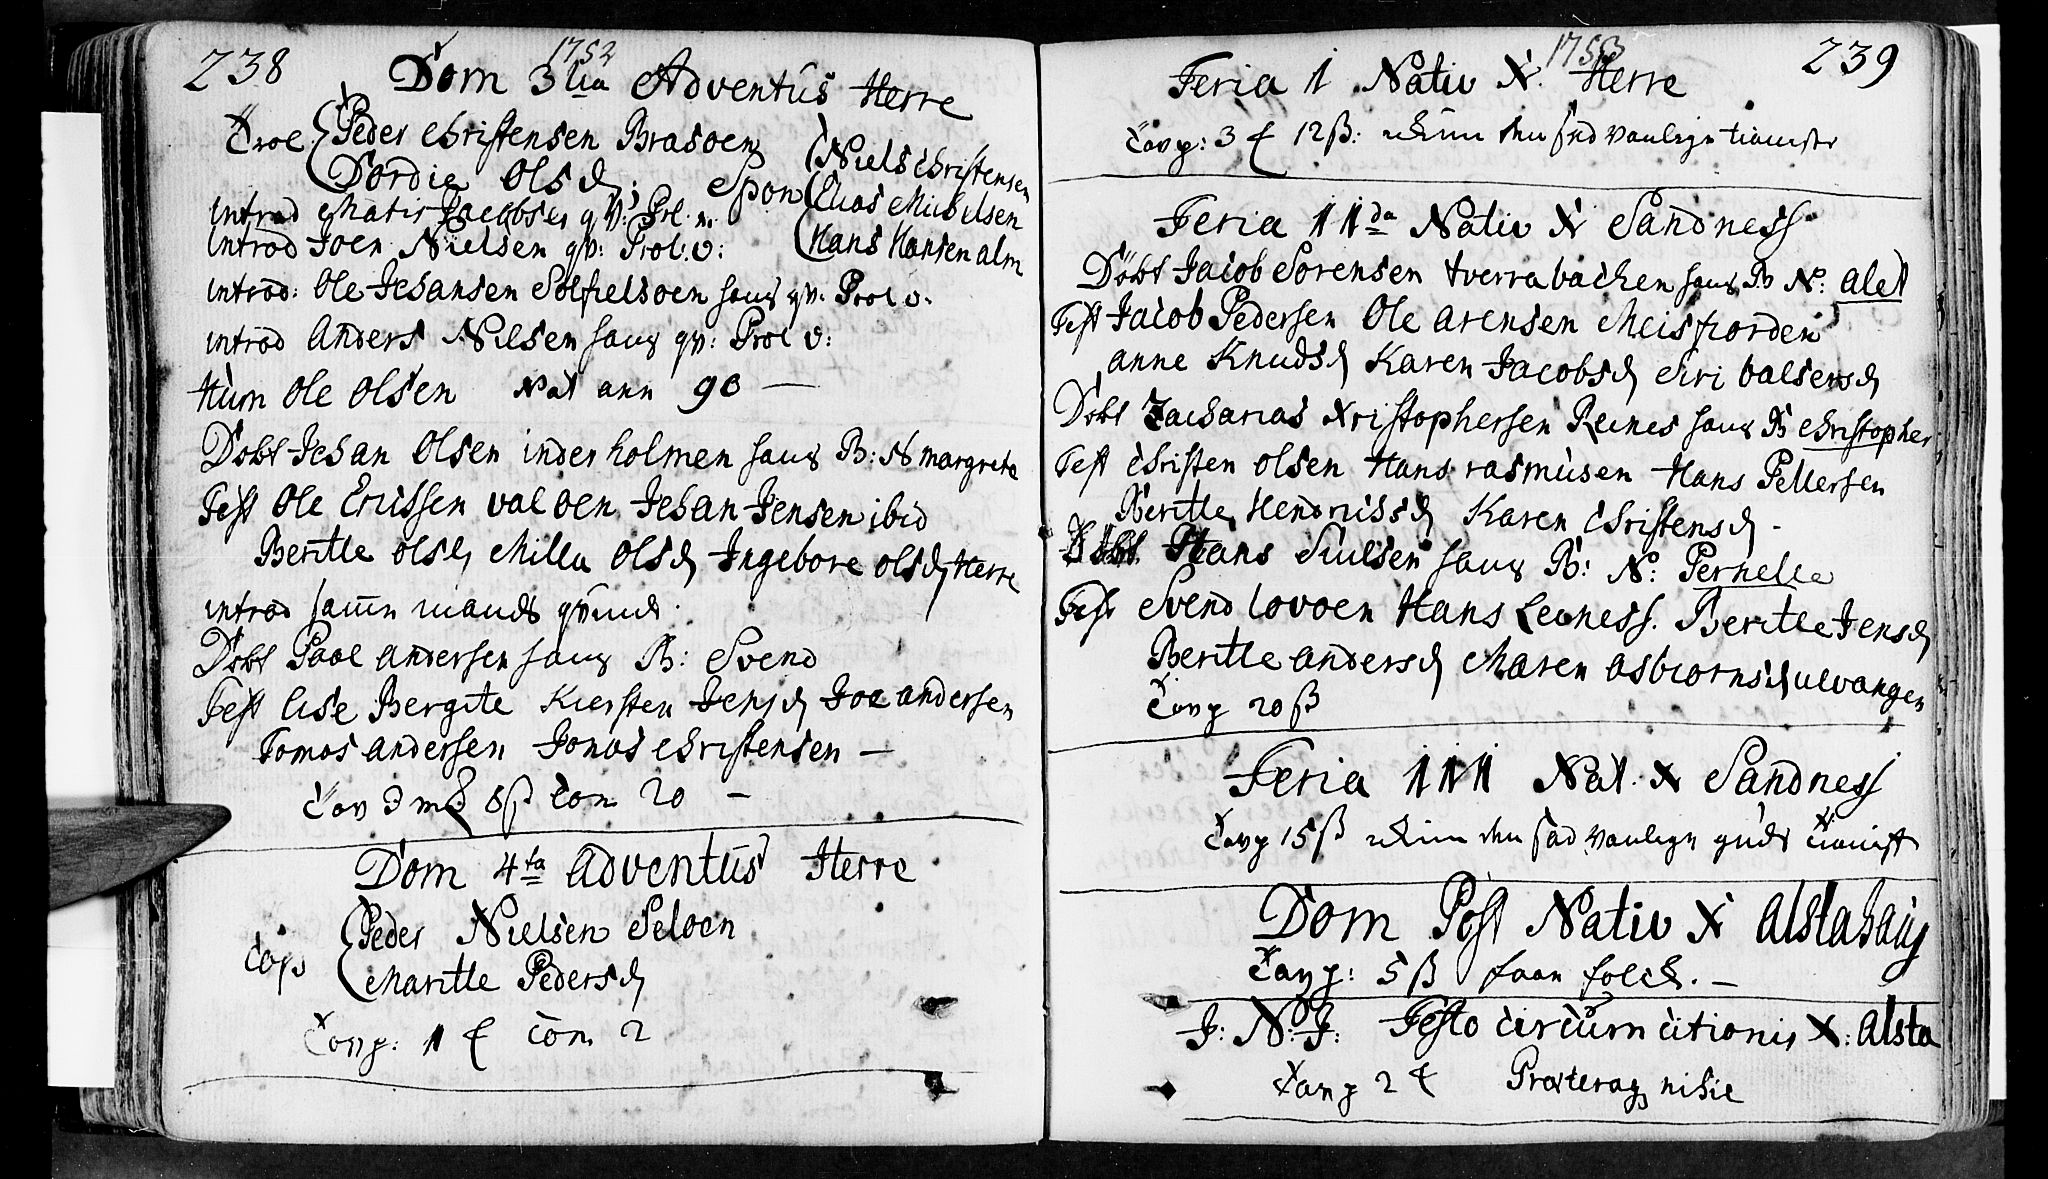 238
1752
Dom 3tia Adventus Herre
Trol. Peder Christensen Brasoen
Dordie Olsd: Spon Niels Christensen
Elias Michelsen
Hans Hansen alm
introd Matis Jacobsen qv: Prol. v.
introd Joen Nielsen qv: Prol. v:
introd: Ole Johansen Solfielsoen hans qv: Prol v.
introd Anders Nielsen hans qv: Prol v:
Hum Ole Olsen Nat ann 90 —
Dobt Johan Olsen inderholmen hans B: N margrete
Test Ole Erissen valoen Johan Jensen ibid
Beritle olsd Milla Olsd Ingebore olsd Herre
introd samme mands qvinde.
Dobt Paol andersen hans B: Svend
Test Lise Bergite Kiersten Jensd Joe andersen
Tomas andersen Jonas Christensen —
Tav 3 m 8 ß Com 20 —
Dom 4ta adventus Herre
Cop Peder Nielsen Seloen
Maritle Pedersd
Tavp: 1 Com 2
1753
239
Feria 1 Nativ X. Herre
Tavp: 3 12 ß: uden den sedvanlige tienester
Feria 11da Nativ X Sandness
Dobt Jacob Sorensen tverrabachen hans B N: alet
Test Jacob Pedersen Ole arensen Meisfiorden
anne Knudsd Karen Jacobsd Siri balsersd
Dobt Zacharias Xristophersen Reines hans B Christopher
Test Christen olsen Hans rasmusen Hans Pettersen
Beritle Hendrichsd Karen Christensd -
Dobt Hans hans B: N: Pernelle
Test Svend lovoen Hans Leoness. Beritle Jensd
Beritle andersd Maren asbiornsd ulvangen
Tavp 20 ß
Feria 111 Nat. X Sandness
Tavp 15 ß uden den sædvanlige guds tienist
Dom Post Nativ X alstahaug
Tavp: 5 ß faae folck. —
J: N: J: Festo circumcitionis X: alsta
Tavp 2 Præterag nihil